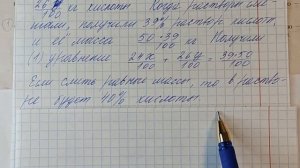 26y/100 кг кислоты. Когда растворы сме-
шали, получили 39% раствор кислоты
и её масса 50·39/100 кг Получили
(1) уравнение 24x/100 + 26y/100 = 39·50/100
Если слить равные массы, то в раство-
ре будет 40% кислоты.